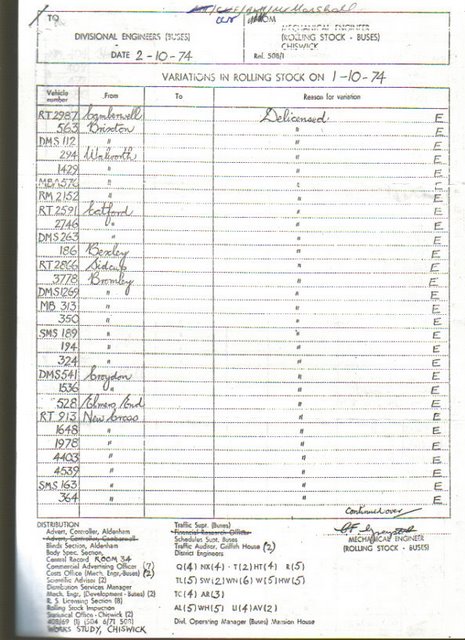 TO
FROM
DIVISIONAL ENGINEERS (BUSES)
MECHANICAL ENGINEER
(ROLLING STOCK - BUSES)
CHISWICK
DATE 2-10-74
Ref. 508/1
VARIATIONS IN ROLLING STOCK ON 1-10-74
Vehicle number From To Reason for variation
RT 2987 Camberwell Delicensed E
563 Brixton " E
DMS 112 " " E
294 Walworth " E
1429 " " E
MBA 576 " " E
RM 2152 " " E
RT 2591 Catford " E
2746 " " E
DMS 263 " " E
186 Bexley " E
RT 2866 Sidcup " E
3778 Bromley " E
DMS 1269 " " E
MB 313 " " E
350 " " E
SMS 189 " " E
194 " " E
324 " " E
DMS 541 Croydon " E
1536 " " E
528 Elmers End " E
RT 913 New Cross " E
1648 " " E
1978 " " E
4403 " " E
4539 " " E
SMS 163 " " E
364 " " E
Continued over
MECHANICAL ENGINEER
(ROLLING STOCK - BUSES)
DISTRIBUTION
Advert, Controller, Aldenham
Advert, Controller, Camberwell
Blinds Section, Aldenham
Body Spec. Section,
Central Record ROOM 34
Commercial Advertising Officer (7)
Costs Office (Mech. Engr.-Buses) (2)
Scientific Adviser (2)
Distribution Services Manager
Mech. Engr. (Development - Buses) (2)
R. S. Licensing Section (8)
Rolling Stock Inspection
Statistical Office - Chiswick (2)
WORKS STUDY, CHISWICK
Traffic Supr. (Buses)
Financial Research Officer
Schedules Supt. Buses
Traffic Auditor, Griffith House (2)
District Engineers
Q(4) NX(4) T(2) HT(4) R(5)
TL(5) SW(2) WN(6) W(5) HW(5)
TC(4) AR(3)
AL(5) WH(5) U(4) AV(2)
Divl. Operating Manager (Buses) Mansion House